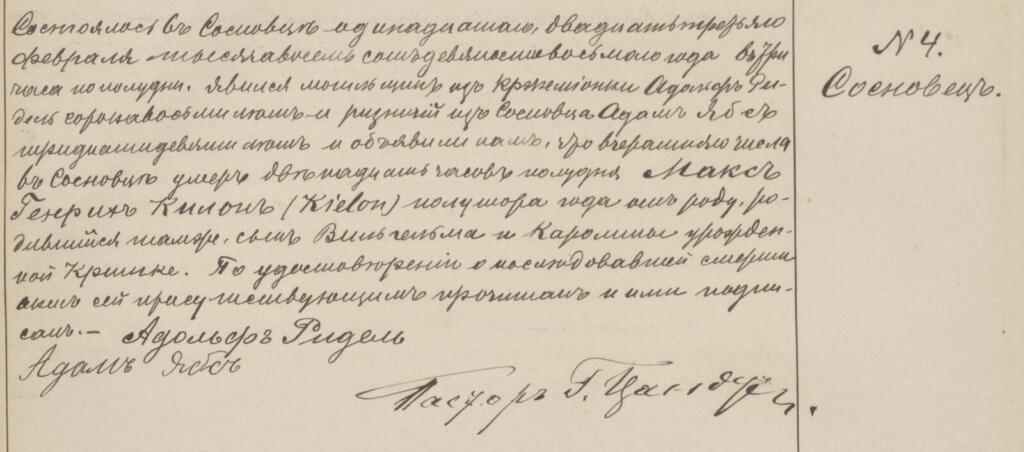 Состоялось въ Сосновцѣ одинадцатаго, двадцать третьяго
февраля тысяча восемь сотъ девяносто восьмаго года въ три
часа пополудни. Явился могильщикъ изъ Кржемionки Адольфъ Ри-
дель сорока восьми лѣтъ и ризничій изъ Сосновца Адамъ Ябсъ
тридцати девяти лѣтъ и объявили намъ, что вчерашняго числа
въ Сосновцѣ умеръ двѣнадцать часовъ полудня Максъ
Генрихъ Килонъ (Kielon) полутора года отъ роду, ро-
дившійся тамже, сынъ Вильгельма и Каролины урожден-
ной Кришке. По удостовѣреніи о послѣдовавшей смерти
актъ сей присутствующимъ прочитанъ и ими подпи-
санъ.— Адольфъ Ридель
Адамъ Ябсъ
Пасторъ Г.
N 4.
Сосновецъ.